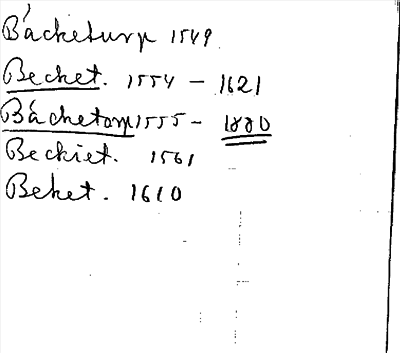 Båcketurp 1549
Becket. 1554 - 1621
Båcketorp 1555 - 1880
Beckiet. 1561
Beket. 1610